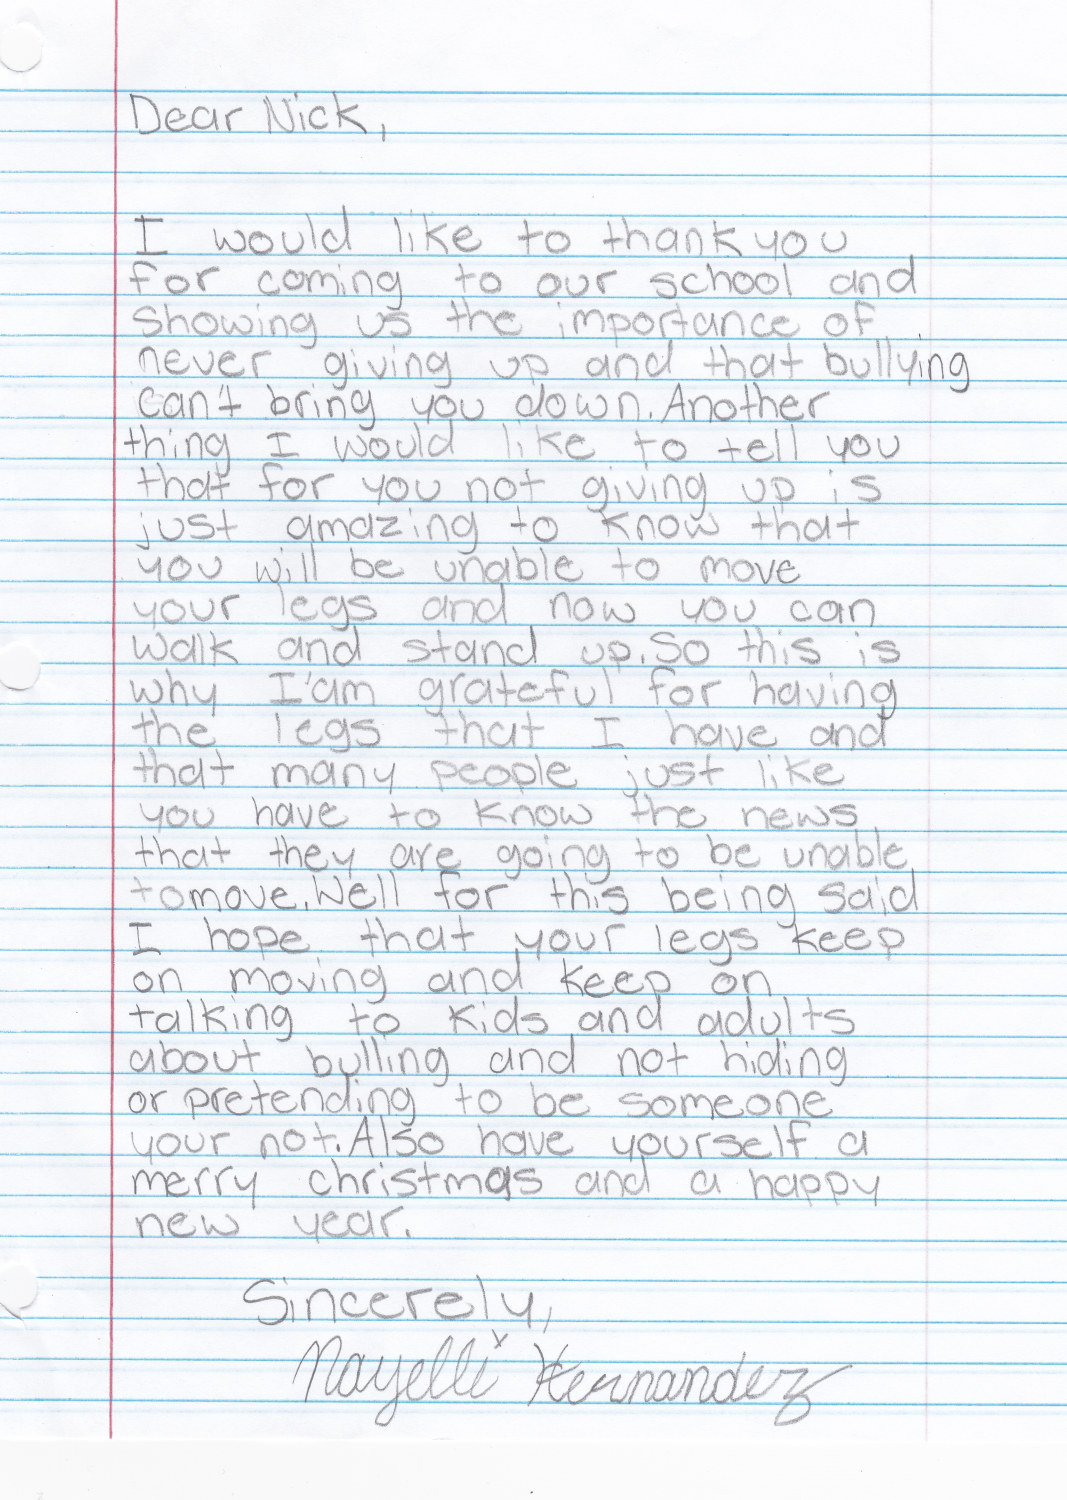 Dear Nick,
I would like to thank you
for coming to our school and
showing us the importance of
never giving up and that bullying
can't bring you down. Another
thing I would like to tell you
that for you not giving up is
just amazing to know that
you will be unable to move
your legs and now you can
walk and stand up. So this is
why I'am grateful for having
the legs that I have and
that many people just like
you have to know the news
that they are going to be unable
to move. Well for this being said
I hope that your legs keep
on moving and keep on
talking to kids and adults
about bulling and not hiding
or pretending to be someone
your not. Also have yourself a
merry christmas and a happy
new year.
Sincerely,
Nayelli Hernandez